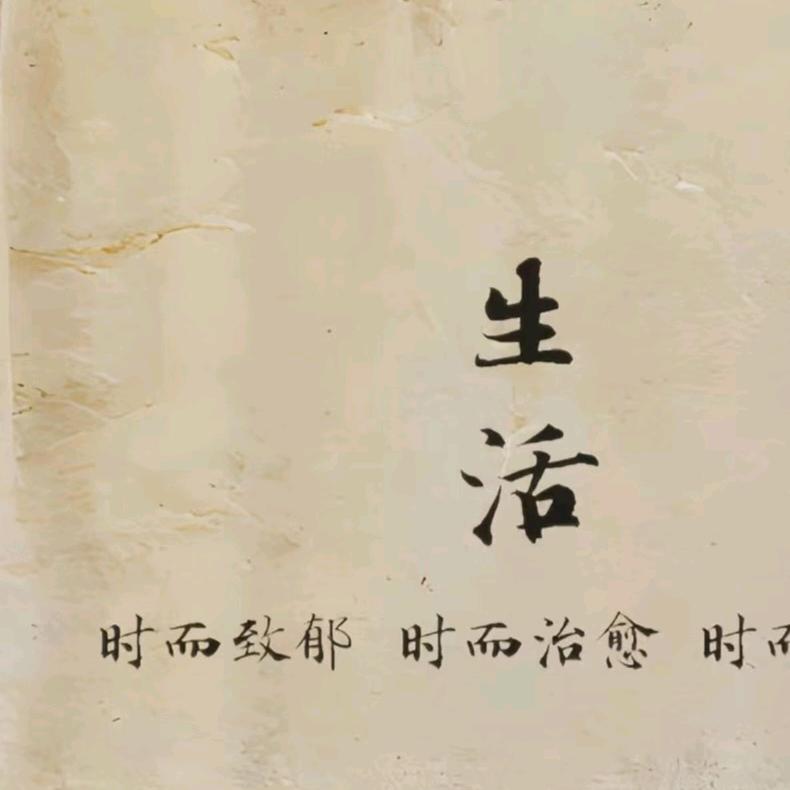 生
活
时而致郁 时而治愈 时